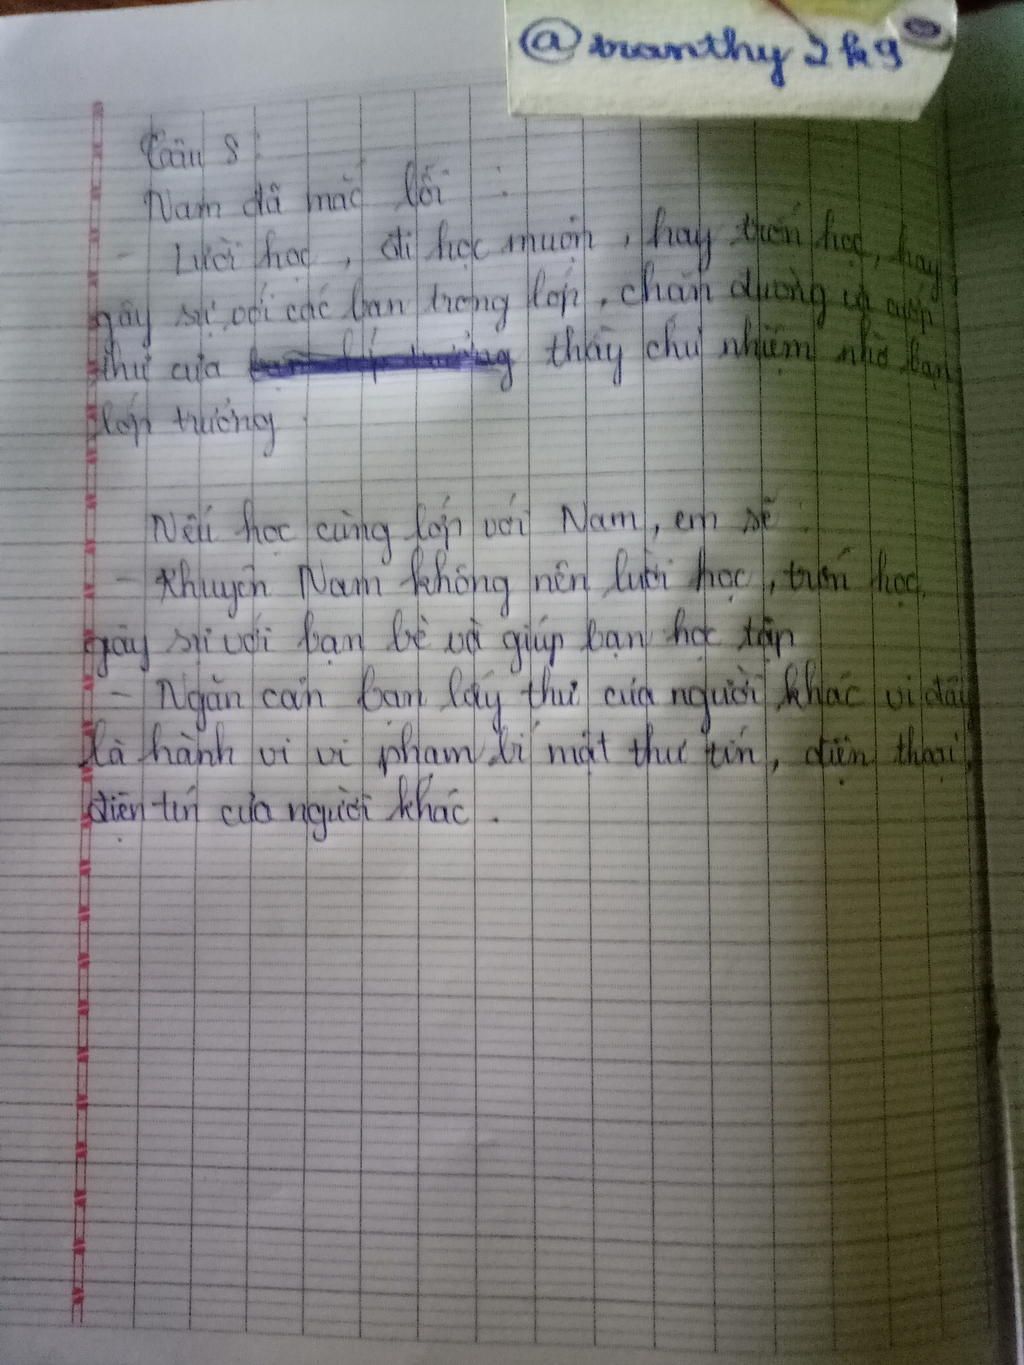 @tranthy2k9
Câu 8:
Nam đã mắc lỗi :
- Lười học, đi học muộn, hay trốn học, hay
gây sự với các bạn trong lớp, chặn đường và cướp
thư của thầy chủ nhiệm nhờ bạn
lớp trưởng.
Nếu học cùng lớp với Nam, em sẽ :
- Khuyên Nam không nên lười học, trốn học,
gây sự với bạn bè và giúp bạn học tập
- Ngăn cản bạn lấy thư của người khác vì đây
là hành vi vi phạm bí mật thư tín, điện thoại,
điện tín của người khác.